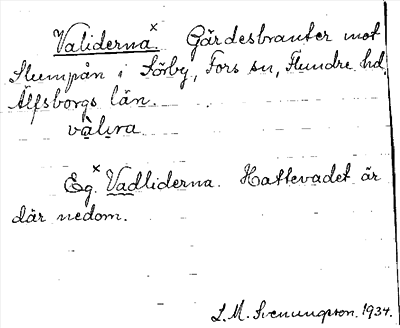 Validerna x Gärdesbranter mot
Slumpån i Sörby, Fors sn, Flundre hd,
Älfsborgs län.
vàlıra
Eg. x Vadliderna. Hattevadet är
där nedom.
L. M. Svenungsson. 1934.